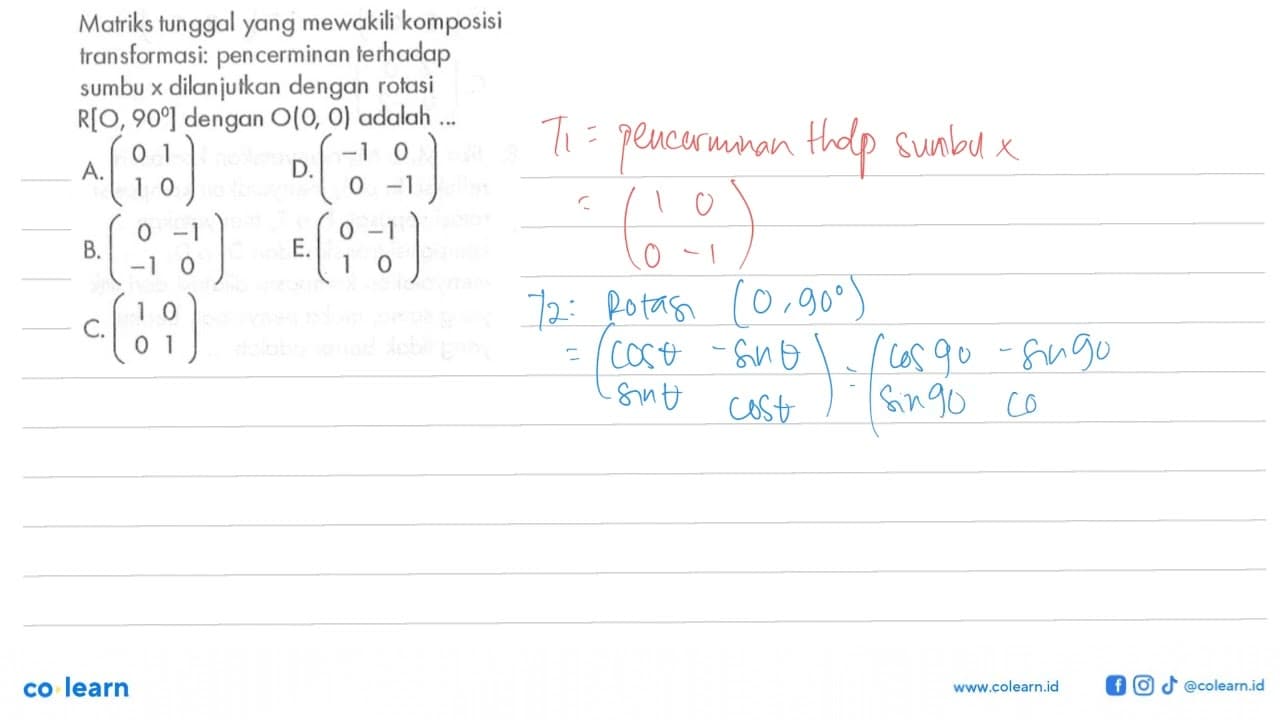 Matriks tunggal yang mewakili komposisi
transformasi: pencerminan terhadap
sumbu x dilanjutkan dengan rotasi
R[O, 90⁰] dengan O(0, 0) adalah ...
A. (0 1
1 0)
B. (0 −1
−1 0)
C. (1 0
0 1)
D. (−1 0
0 −1)
E. (0 −1
1 0)
T1 = pencerminan thdp sumbu x
= (1 0
0 -1)
T2: Rotasi (0,90°)
= (cos θ - sin θ
sin θ cos θ) = (cos 90 - sin 90
sin 90 co
co learn
www.colearn.id
@colearn.id